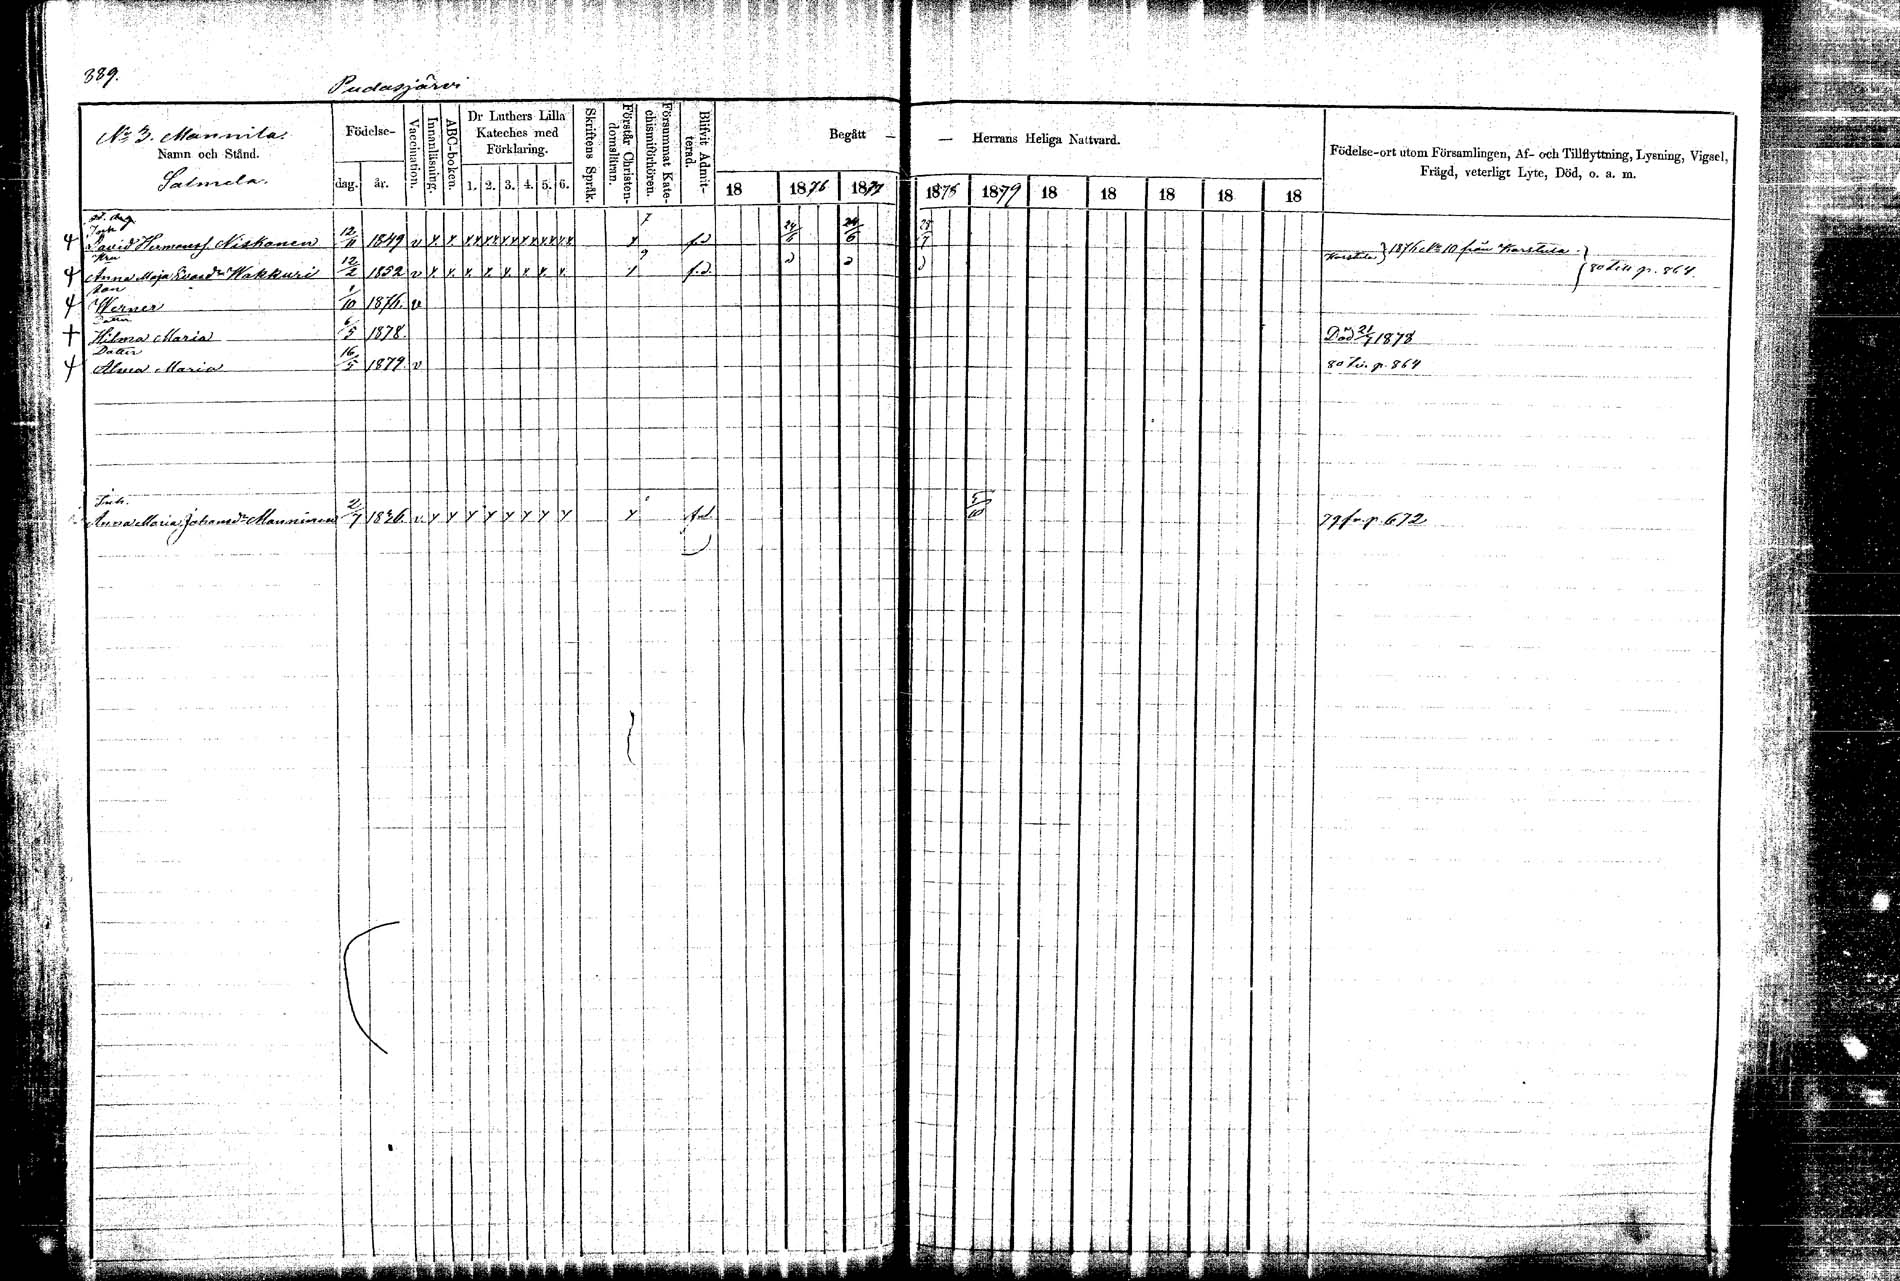 389.
Pudasjärvi
No 3. Mannila.
Namn och Stånd.
Salmela.
Födelse-
dag. år.
Vaccination.
Innanläsning.
ABC-boken.
Dr Luthers Lilla
Kateches med
Förklaring.
1. 2. 3. 4. 5. 6.
Skriftens Språk.
Förstår Christen-
domslitann.
Försummat Kate-
chismiförhören.
Blifvit Admit-
terad.
Begått — — Herrans Heliga Nattvard.
18 1876 1877 1878 1879 18 18 18 18 18
Födelse-ort utom Församlingen, Af- och Tillflyttning, Lysning, Vigsel,
Frägd, veterligt Lyte, Död, o. a. m.
Inh
David Hermanss Niskanen 12/11 1849 v x x x x x x x x x x x x x 7 f.d 24/6 24/6 28/7
Hru
Anna Maja Evardsdr Wakkuri 12/2 1852 v x x x x x x x x x 9 f.d.
Karstula } 1876 No 10 från Karstula.
80 till p. 864.
Son
Werner 1/10 1876. v
Dotter
Hilma Maria 6/5 1878. Död 21/7 1878
Dotter
Alma Maria 16/5 1879 v 80 till p. 864
Inh.
Anna Maria Johansdr Manninen 2/7 1826. v. x x x x x x x x x f.d 5/10 79 fr. p. 672